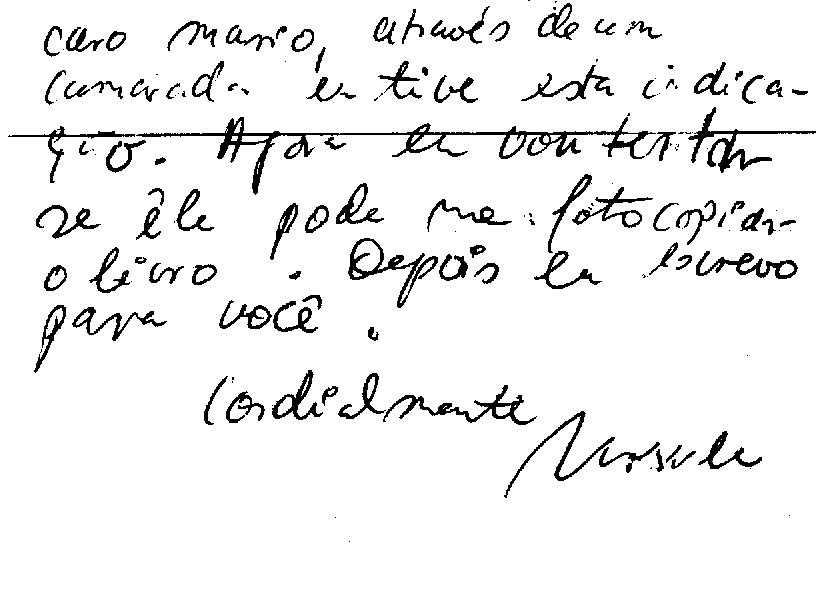 caro mario, através de um
camarada eu tive esta indica-
ção. Agora eu vou tentar
se êle pode me fotocopiar
o livro. Depois eu escrevo
para você.
Cordialmente